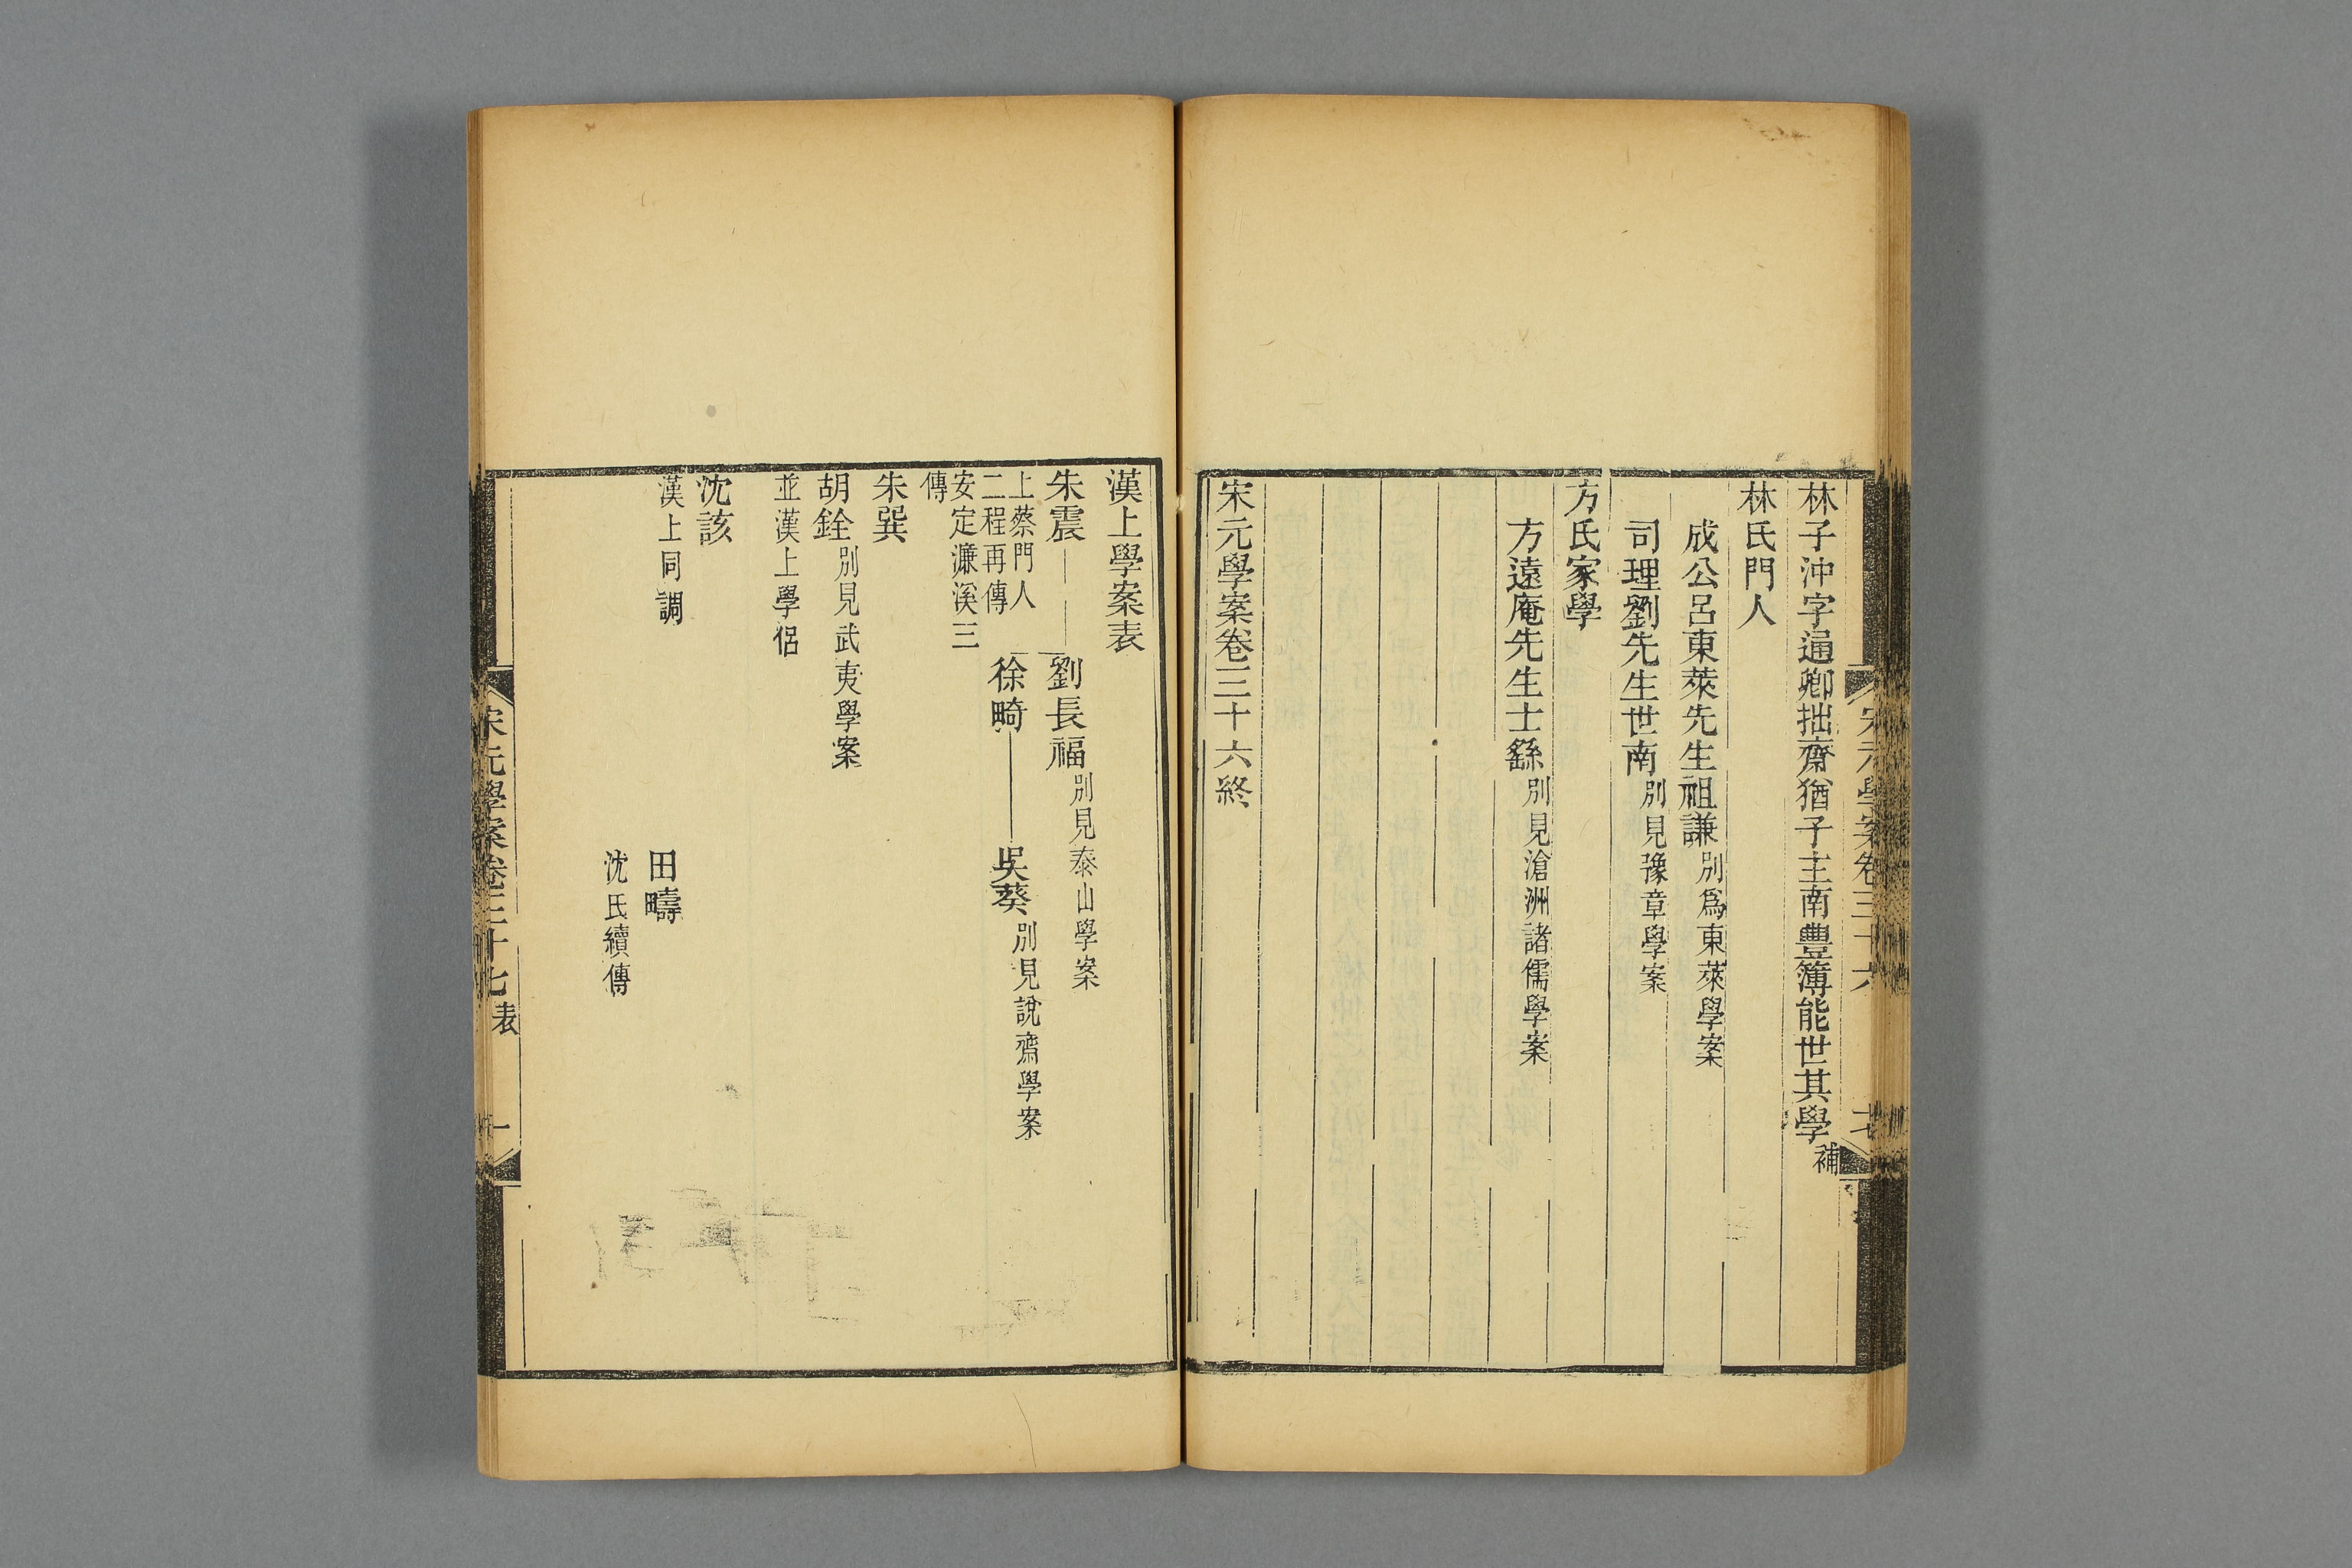 林子沖字通卿拙齋猶子主南豐簿能世其學補
林氏門人
成公呂東萊先生祖謙別爲東萊學案
司理劉先生世南別見豫章學案
方氏家學
方遠庵先生士繇別見滄洲諸儒學案
宋元學案卷三十六終
漢上學案表
朱震
劉長福別見泰山學案
上蔡門人
二程再傳
安定濂溪三
傳
徐畸
吳葵別見說齋學案
朱巽
胡銓別見武夷學案
並漢上學侶
沈該
漢上同調
田疇
沈氏續傳
宋元學案卷三十七表
一